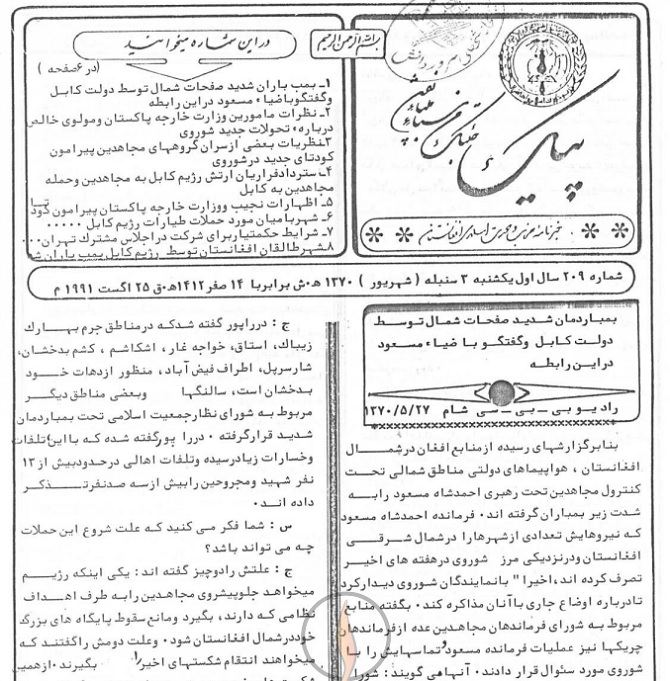 بسم الله الرحمن الرحیم
در این شماره میخوانید
(در ۶ صفحه)
۱ـ بمب باران شدید صفحات شمال توسط دولت کابل
وگفتگو باضیاء مسعود در این رابطه
۲ـ نظرات مامورین وزارت خارجه پاکستان ومولوی خالص
درباره تحولات جدید شوروی
۳ـ نظریات بعضی ازسران گروههای مجاهدین پیرامون
کودتای جدید در شوروی
۴ـ استرداد فراریان ارتش رژیم کابل به مجاهدین وحمله
مجاهدین به کابل
۵ـ اظهارات نجیب ووزارت خارجه پاکستان پیرامون کودتا
۶ـ شهربامیان مورد حملات طیارات رژیم کابل ۰۰۰۰۰
۷ـ شرایط حکمتیار برای شرکت دراجلاس مشترک تهران۰۰۰
۸ـ شهرطالقان افغانستان توسط رژیم کابل بمب باران شد
پیام
خبرنامه حزب وحدت اسلامی افغانستان
شماره ۲۰۹ سال اول یکشنبه ۳ سنبله ( شهریور ) ۱۳۷۰ هـ۰ش برابر با ۱۴ صفر ۱۴۱۲ هـ۰ق ۲۵ اگست ۱۹۹۱ م
بمباردمان شدید صفحات شمال توسط
دولت کابل وگفتگو با ضیاء مسعود
دراین رابطه
رادیو بی ـ بی ـ سی شام ۱۳۷۰/۵/۲۷
بنابرگزارشهای رسیده ازمنابع افغان درشمال
افغانستان ، هواپیماهای دولتی مناطق شمالی تحت
کنترول مجاهدین تحت رهبری احمدشاه مسعود رابه
شدت زیر بمباران گرفته اند۰ فرمانده احمدشاه مسعود
که نیروهایش تعدادی ازشهرها را درشمال شرقی
افغانستان ودرنزدیکی مرز شوروی درهفته های اخیر
تصرف کرده اند،اخیرا" بانمایندگان شوروی دیدارکرد
تادرباره اوضاع جاری باآنان مذاکره کند۰ بگفته منابع
مربوط به شورای فرماندهان مجاهدین عده ازفرماندهان
چریکها نیز عملیات فرمانده مسعود وتماسهایش را با
شوروی مورد سئوال قرار دادند۰ آنهامی گویند: شورا
ج : درراپور گفته شدکه درمناطق جرم بهارک
زیباک، استاق، خواجه غار، اشکاشم ، کشم بدخشان،
شارسرپل، اطراف فیض آباد، منظور ازدهات خود
بدخشان است، سالنگها وبعضی مناطق دیگر
مربوط به شورای نظارجمعیت اسلامی تحت بمباردمان
شدید قرارگرفته ۰ دررا پورگفته شده که بااین تلفات
وخسارات زیادرسیده وتلفات اهالی درحدودبیش از ۱۳
نفر شهید ومجروحین رابیش ازسه صدنفرتذکر
داده اند۰
س : شما فکر می کنید که علت شروع این حملات
چه می تواند باشد؟
ج : علتش رادوچیز گفته اند: یکی اینکه رژیم
میخواهد جلوپیشروی مجاهدین رابه طرف اهداف
نظامی که دارند، بگیرد ومانع سقوط پایگاه های بزرگ
خوددرشمال افغانستان شود۰ وعلت دومش راگفتند که
میخواهند انتقام شکستهای اخیررا بگیرند۰ازهمین